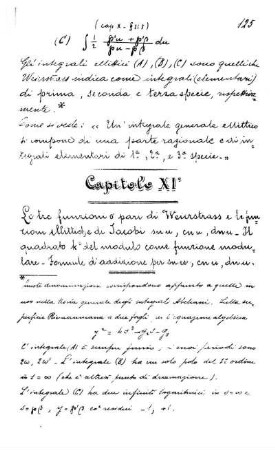 (cap X - § 115)
125
(C) ∫ 1/2 (p'u + p'β)/(pu - pβ) du
Gli integrali ellittici (A), (B), (C) sono quelli che
Weierstrass indica come integrali (elementari)
di prima, seconda e terza specie, rispettiva-
mente. *
Come si vede: « Un' integrale generale ellittico
si compone di una parte razionale e di in-
tegrali elementari di 1ª, 2ª, e 3ª specie. »
Capitolo XI°
Le tre funzioni σ pari di Weierstrass e le fun
zioni ellittiche di Jacobi sn u, cn u, dn u. Il
quadrato k² del modulo come funzione modu-
lare. Formule di addizione per sn u, cn u, dn u.
* denominazioni corrispondono appunto a quelle in
uso nella teoria generale degli integrali Abeliani. Sulla su-
perficie Riemanniana a due fogli di equazione algebrica
y² = 4σ³ - g₂σ - g₃
L' integrale (A) è sempre finito, i suoi periodi sono
2ω, 2ω'. L' integrale (B) ha un solo polo del 1° ordine
in σ = ∞ (che è altresì punto di diramazione).
L' integrale (C) ha due infiniti logaritmici in σ = ∞ e
σ = pβ, y = p'β coi residui -1, +1.